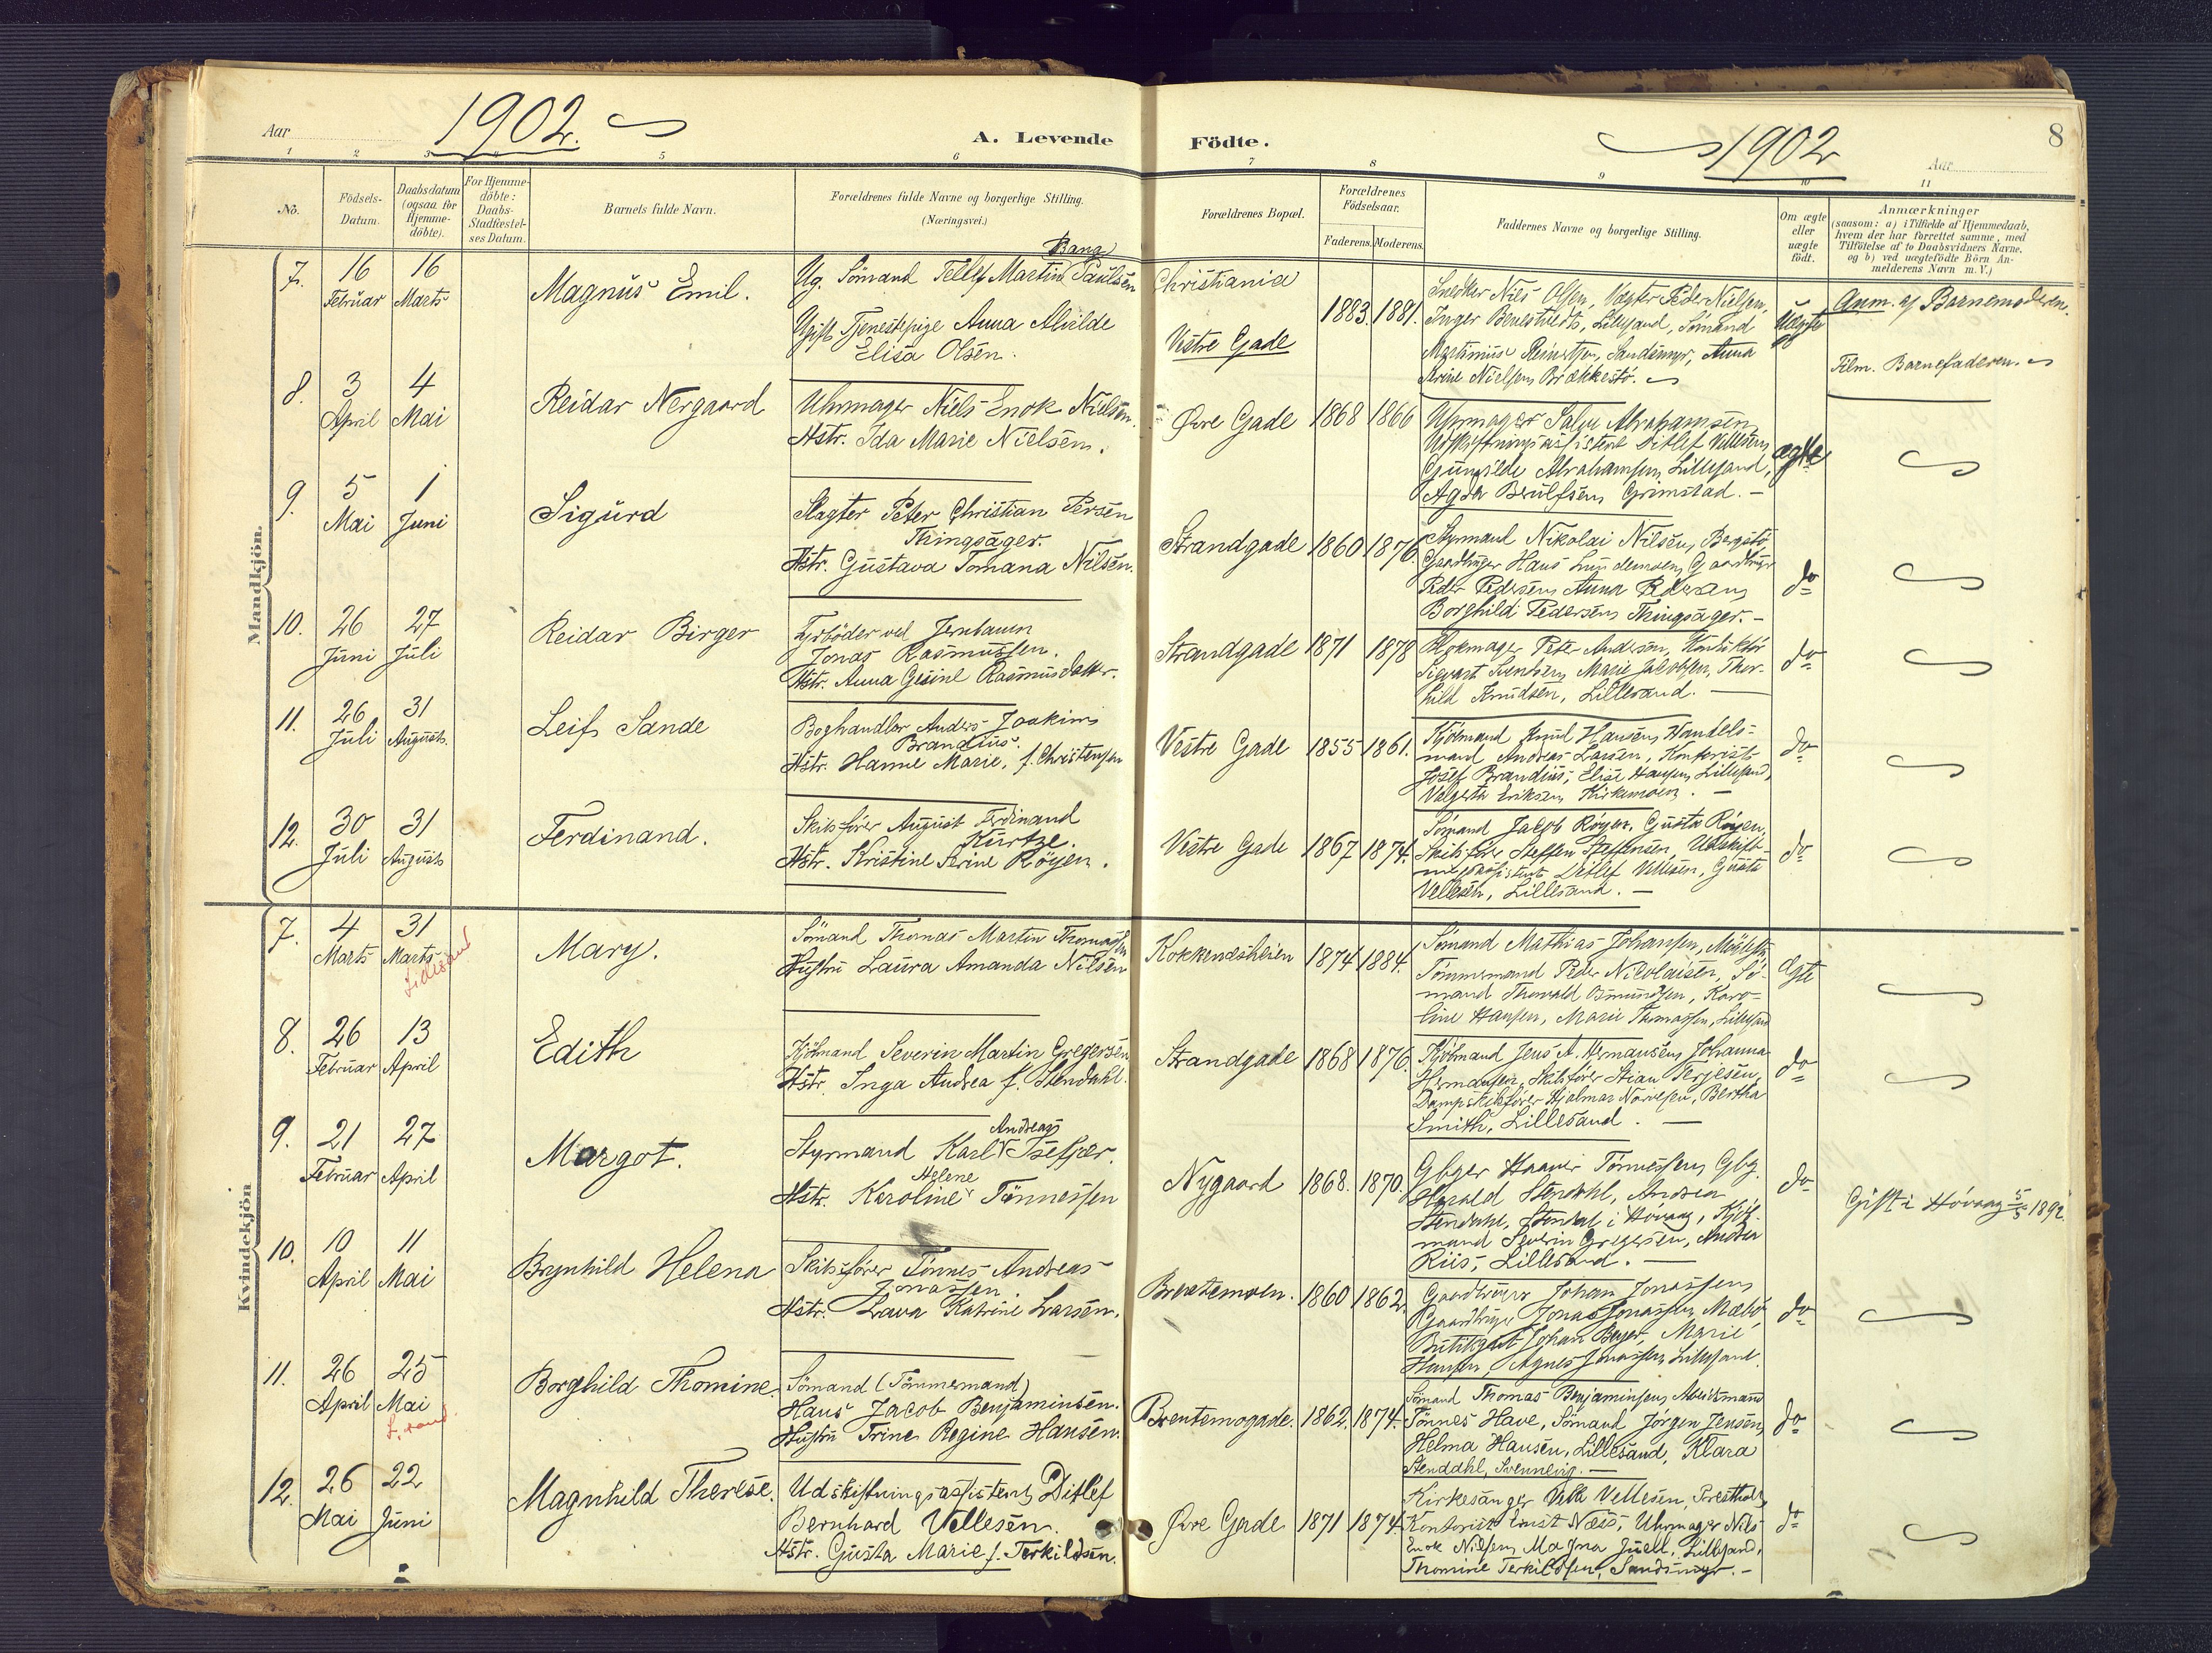 Aar 1902.
A. Levende Födte.
1902
Aar
8
1 2 3 4 5 6 7 8 9 10 11
No.
Födsels-Datum.
Daabsdatum (ogsaa for Hjemme-döbte).
For Hjemme-döbte: Daabs-Stadfæstel-ses Datum.
Barnets fulde Navn.
Forældrenes fulde Navne og borgerlige Stilling.
(Næringsvei.)
Forældrenes Bopæl.
Forældrenes Födselsaar.
Faderens. Moderens.
Faddernes Navne og borgerlige Stilling.
Om ægte eller uægte födt.
Anmærkninger
(saasom: a) i Tilfælde af Hjemmedaab,
hvem der har forrettet samme, med
Tilföielse af to Daabsvidners Navne.
og b) ved uægtefödte Börn An-
melderens Navn m. V.)
Mandkjön.
7. 16 Februar 16 Marts
Magnus Emil.
Bang
Ug. Sömand Tellef Martin Paulsen
Ugift Tjenestepige Anna Alvilde
Elisa Olsen.
Christiania
Vestre Gade
1883. 1881.
Snedker Niels Olsen, Vægter Peder Nielsen,
Inger Lillesand, Sömand
Martinius Reinertsen, Sandsmyr, Anna
Serine Nielsen Brækkestö.
Uægte
Anm. af Barnemoderen.
Barnefaderen.
8. 3 April 4 Mai
Reidar Nergaard
Uhrmager Niels Enok Nielsen.
Hstr. Ida Marie Nielsen.
Øvre Gade 1868 1866
Uhrmager Salve Abrahamsen,
Udskiftningsassistent Ditlef Vellesen,
Gunvilde Abrahamsen, Lillesand,
Agda Berulfsen, Grimstad.
ægte
9. 5 Mai 1 Juni
Sigurd
Slagter Peter Christian Persen
Thingsager.
Hstr. Gustava Tomana Nilsen.
Strandgade 1860 1876.
Styrmand Nikolai Nilsen, Bergstö
Gaardbruger Hans Lundemoen, Gaardbruger
Peder Pedersen, Anna Pedersen,
Borghild Pedersen, Thingsager.
do
10. 26 Juni 27 Juli
Reidar Birger
Fyrböder ved Jernbanen
Jonas Rasmussen.
Hstr. Anna Gesine Rasmusdatter.
Strandgade 1871 1878
Blokmager Peter Andersen, Konduktör
Sievert Svendsen, Marie Jakobsen, Thor-
hild Knudsen, Lillesand.
do
11. 26 Juli 31 August.
Leif Sande
Boghandler Anders Joakim
Brandius.
Hstr. Hanne Marie, f. Christensen
Vestre Gade 1855 1861.
Kjöbmand Knud Hansen, Handels-
mand Andreas Larsen, Kontorist
Josef Brandius, Elise Hansen, Lillesand,
Valgerta Eriksen, Kirkemoen.
do
12. 30 Juli 31 August
Ferdinand.
Skibsförer August Ferdinand
Kurtze.
Hstr. Kristine Serine Röyen.
Vestre Gade 1867 1874.
Sömand Jacob Röyen, Gusta Röyen,
Skibsförer Steffen Steffensen, Udskift-
ningsassistent Ditlef Vellesen, Gusta
Vellesen, Lillesand.
do
Kvindekjön
7. 4 Marts 31 Marts
Lillesand
Mary.
Sömand Thomas Martin Thomassen
Hustru Laura Amanda Nilsen
Kokkenesheien 1874 1884.
Sömand Mathias Johansen,
Tömmermand Peder Nicolaisen, Sö-
mand Thorvald Osmundsen, Karo-
line Hansen, Marie Thomassen, Lillesand
Ægte
8. 26 Februar 13 April
Edith
Kjöbmand Severin Martin Gregersen
Hstr. Inga Andrea f. Stendahl.
Strandgade 1868 1876.
Kjöbmand Jens A. Hermansen, Johanna
Hermansen, Skibsförer Stian Terjesen,
Dampskibsförer Hjalmar Norvesen, Bertha
Smith, Lillesand.
do
9. 21 Februar 27 April
Margot.
Andreas
Styrmand Karl Isefjær.
Helene
Hstr. Karoline Tönnessen
Nygaard 1868. 1870.
Gbger Haaver Tönnessen, Gbg.
Harald Stendahl, Andrea
Stendahl, Stendal i Hövaag, Kjöb-
mand Severin Gregersen, Andrea
Riis, Lillesand.
do
Gift i Hövaag 5/5 1892.
10. 10 April 11 Mai
Brynhild Helena
Skibsförer Tönnes Andreas
Jonassen
Hstr. Lava Katrine Larsen.
Brentemoen. 1860 1862.
Gaardbruger Johan Jonassen,
Gaardbruger Jonas Jonassen, Mæbö,
Johan Beyer, Marie
Hansen, Agnes Jonassen, Lillesand.
do
11. 26 April 25 Mai
L.sand
Borghild Thomine.
Sömand (Tömmermand)
Hans Jacob Benjaminsen.
Hustru Trine Regine Hansen.
Brentemogade. 1862. 1874.
Sömand Thomas Benjaminsen, Arbeidsmand
Tönnes Have, Sömand Jörgen Jensen,
Helma Hansen, Lillesand, Klara
Stenddhl, Svennevig.
do
12. 26 Mai 22 Juni
Magnhild Therese.
Udskiftningsassistent Ditlef
Bernhard Vellesen.
Hstr. Gusta Marie f. Terkildsen.
Øvre Gade 1871 1874.
Kirkesanger Velle Vellesen, Prestholt,
Kontorist Ernst Næss, Uhrmager Nils
Enok Nielsen, Magna Juell, Lillesand,
Thomine Terkildsen, Sandsmyr.
do